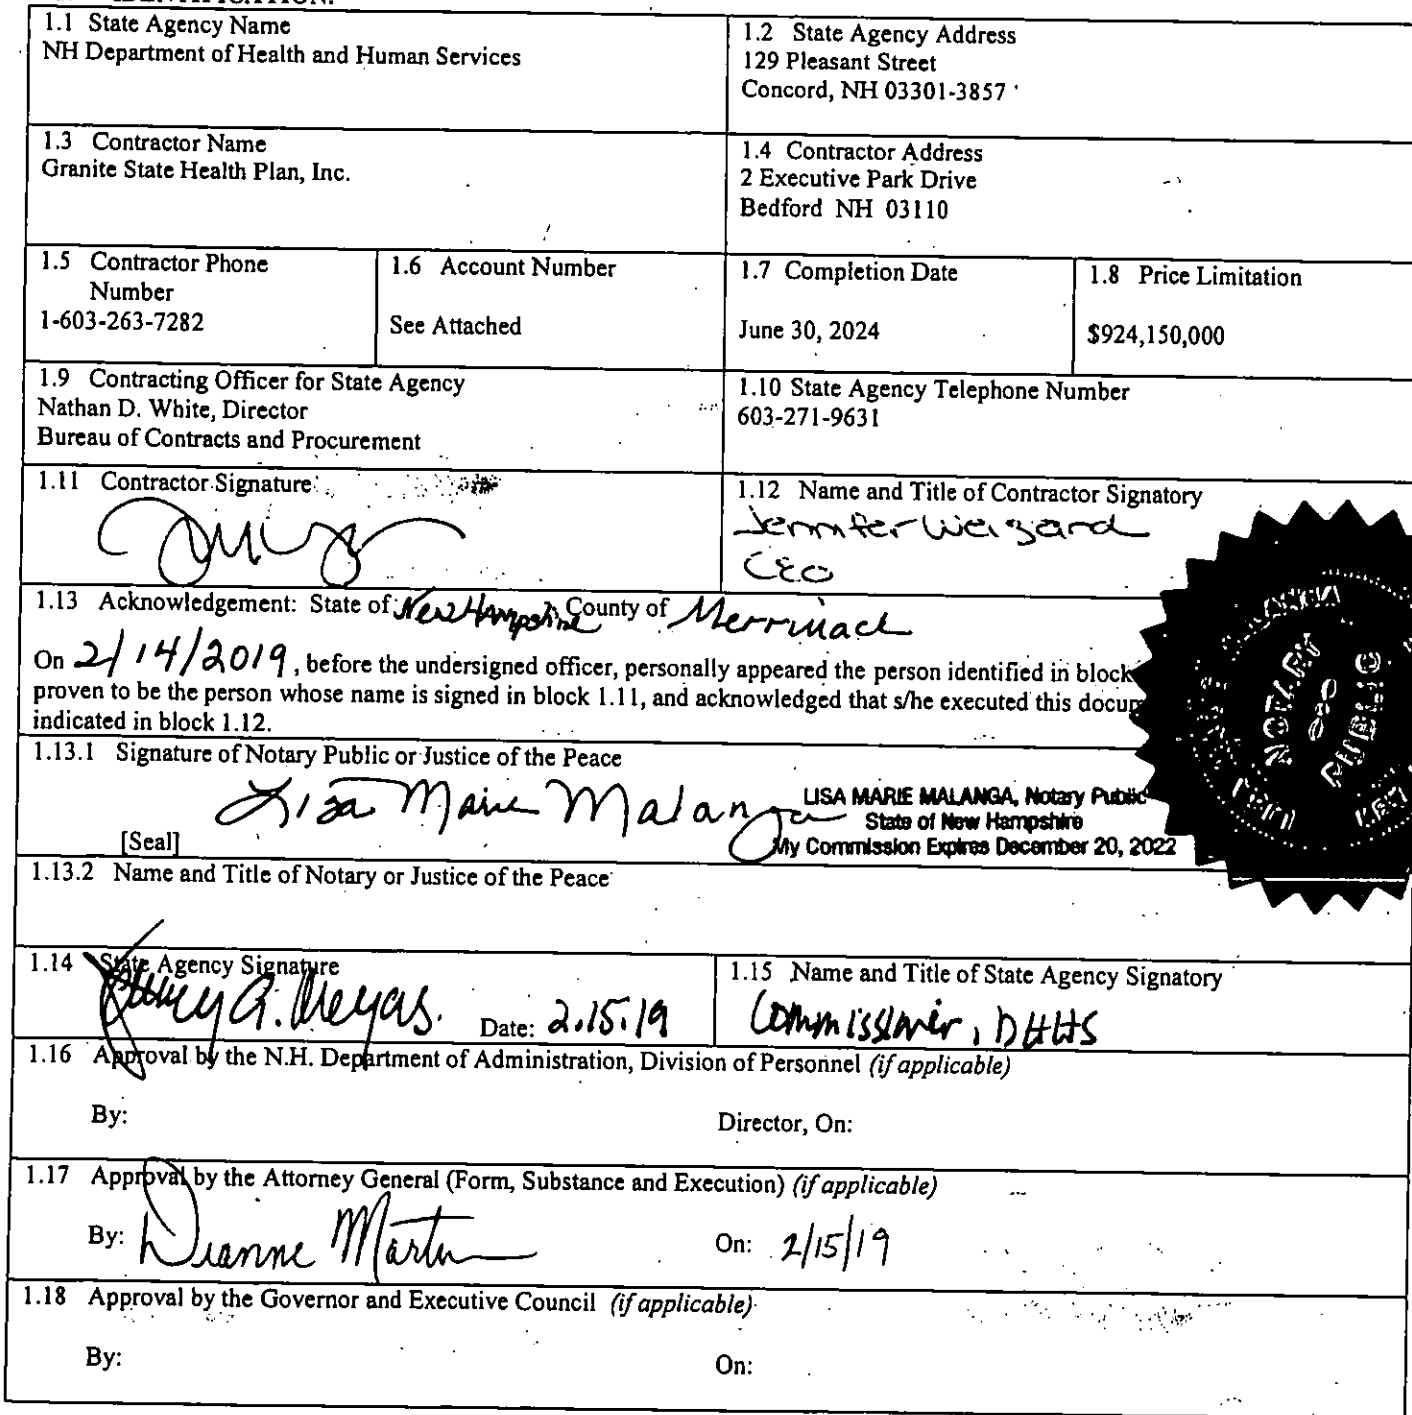 IDENTIFICATION.
1.1 State Agency Name
NH Department of Health and Human Services
1.2 State Agency Address
129 Pleasant Street
Concord, NH 03301-3857
1.3 Contractor Name
Granite State Health Plan, Inc.
1.4 Contractor Address
2 Executive Park Drive
Bedford NH 03110
1.5 Contractor Phone
Number
1-603-263-7282
1.6 Account Number
See Attached
1.7 Completion Date
June 30, 2024
1.8 Price Limitation
$924,150,000
1.9 Contracting Officer for State Agency
Nathan D. White, Director
Bureau of Contracts and Procurement
1.10 State Agency Telephone Number
603-271-9631
1.11 Contractor Signature
1.12 Name and Title of Contractor Signatory
Jennifer Weigand
CEO
1.13 Acknowledgement: State of New Hampshire County of Merrimack
On 2/14/2019, before the undersigned officer, personally appeared the person identified in block
proven to be the person whose name is signed in block 1.11, and acknowledged that s/he executed this docum
indicated in block 1.12.
NOTARY
PUBLIC
1.13.1 Signature of Notary Public or Justice of the Peace
Lisa Marie Malanga
LISA MARIE MALANGA, Notary Public
State of New Hampshire
My Commission Expires December 20, 2022
[Seal]
1.13.2 Name and Title of Notary or Justice of the Peace
1.14 State Agency Signature
Date: 2.15.19
1.15 Name and Title of State Agency Signatory
Commissioner, DHHS
1.16 Approval by the N.H. Department of Administration, Division of Personnel (if applicable)
By:
Director, On:
1.17 Approval by the Attorney General (Form, Substance and Execution) (if applicable)
By: Dianne Martin
On: 2/15/19
1.18 Approval by the Governor and Executive Council (if applicable)
By:
On: